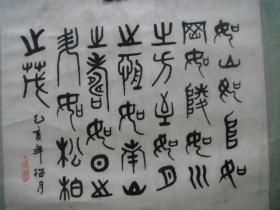 如山如阜如
岡如陵如川
之方至如月
之恆如南山
之壽如日
如松柏
之茂
乙亥年月